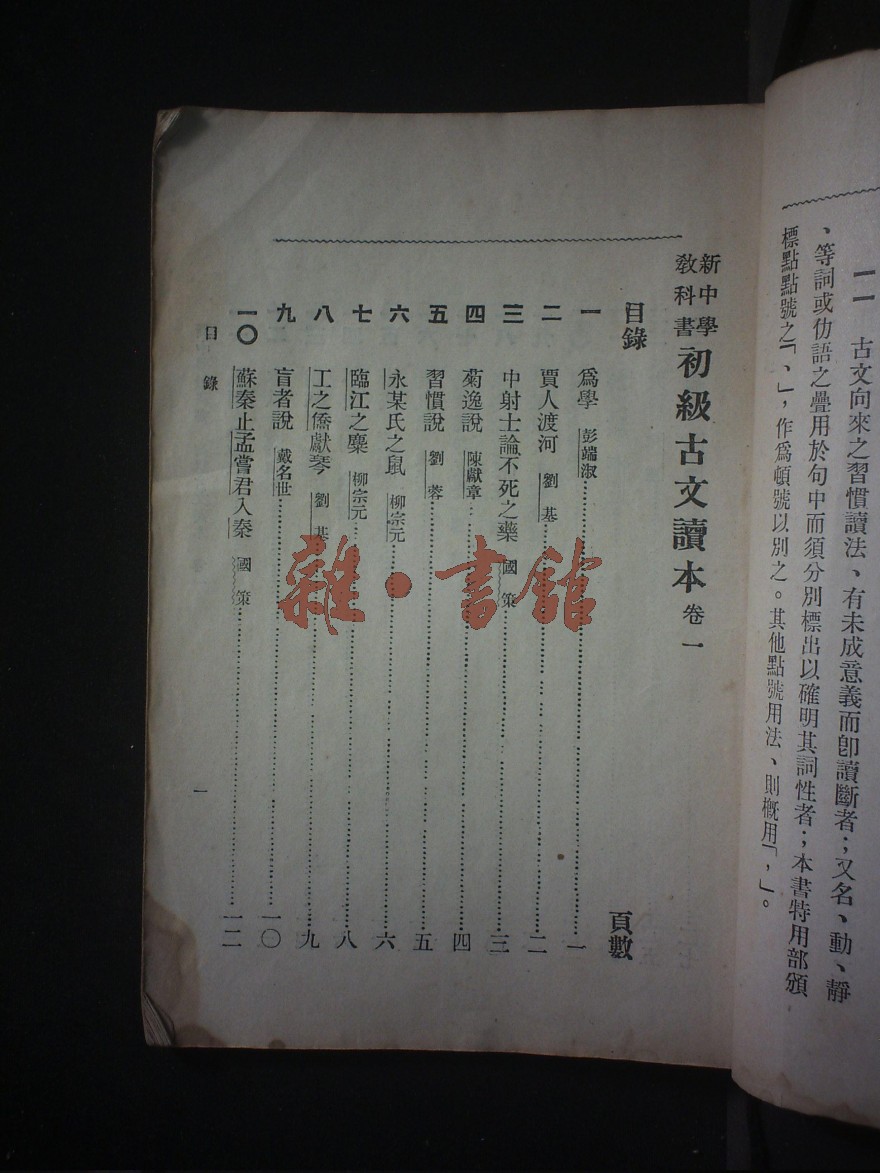 一一 古文向來之習慣讀法、有未成意義而卽讀斷者；又名、動、靜
、等詞或仂語之疊用於句中而須分別標出以確明其詞性者；本書特用部頒
標點點號之「、」，作爲頓號以別之。其他點號用法、則槪用「，」。
新中學教科書 初級古文讀本 卷一
目錄 頁數
一 爲學 彭端淑 一
二 賈人渡河 劉基 二
三 中射士論不死之藥 國策 三
四 菊逸說 陳獻章 四
五 習慣說 劉蓉 五
六 永某氏之鼠 柳宗元 六
七 臨江之麋 柳宗元 八
八 工之僑獻琴 劉基 九
九 盲者說 戴名世 一〇
一〇 蘇秦止孟嘗君入秦 國策 一二
目錄 一
雜·書館